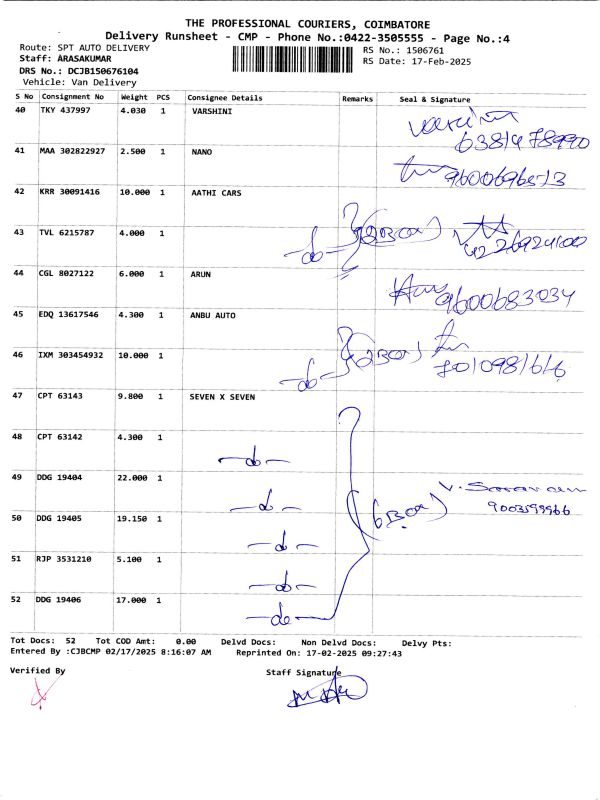 THE PROFESSIONAL COURIERS, COIMBATORE
Delivery Runsheet - CMP - Phone No.:0422-3505555 - Page No.:4
Route: SPT AUTO DELIVERY
Staff: ARASAKUMAR
DRS No.: DCJB150676104
Vehicle: Van Delivery
RS No.: 1506761
RS Date: 17-Feb-2025
S No Consignment No Weight PCS Consignee Details Remarks Seal & Signature
40 TKY 437997 4.030 1 VARSHINI
6381478990
41 MAA 302822927 2.500 1 NANO
9600696513
42 KRR 30091416 10.000 1 AATHI CARS
43 TVL 6215787 4.000 1 -do-
44 CGL 8027122 6.000 1 ARUN
9600683034
45 EDQ 13617546 4.300 1 ANBU AUTO
46 IXM 303454932 10.000 1 -do-
7010981616
47 CPT 63143 9.800 1 SEVEN X SEVEN
48 CPT 63142 4.300 1 -do-
49 DDG 19404 22.000 1 -do- (6 Box) V. Saravanan
9003599966
50 DDG 19405 19.150 1 -do-
51 RJP 3531210 5.100 1 -do-
52 DDG 19406 17.000 1 -do-
Tot Docs: 52 Tot COD Amt: 0.00 Delvd Docs: Non Delvd Docs: Delvy Pts:
Entered By :CJBCMP 02/17/2025 8:16:07 AM Reprinted On: 17-02-2025 09:27:43
Verified By Staff Signature